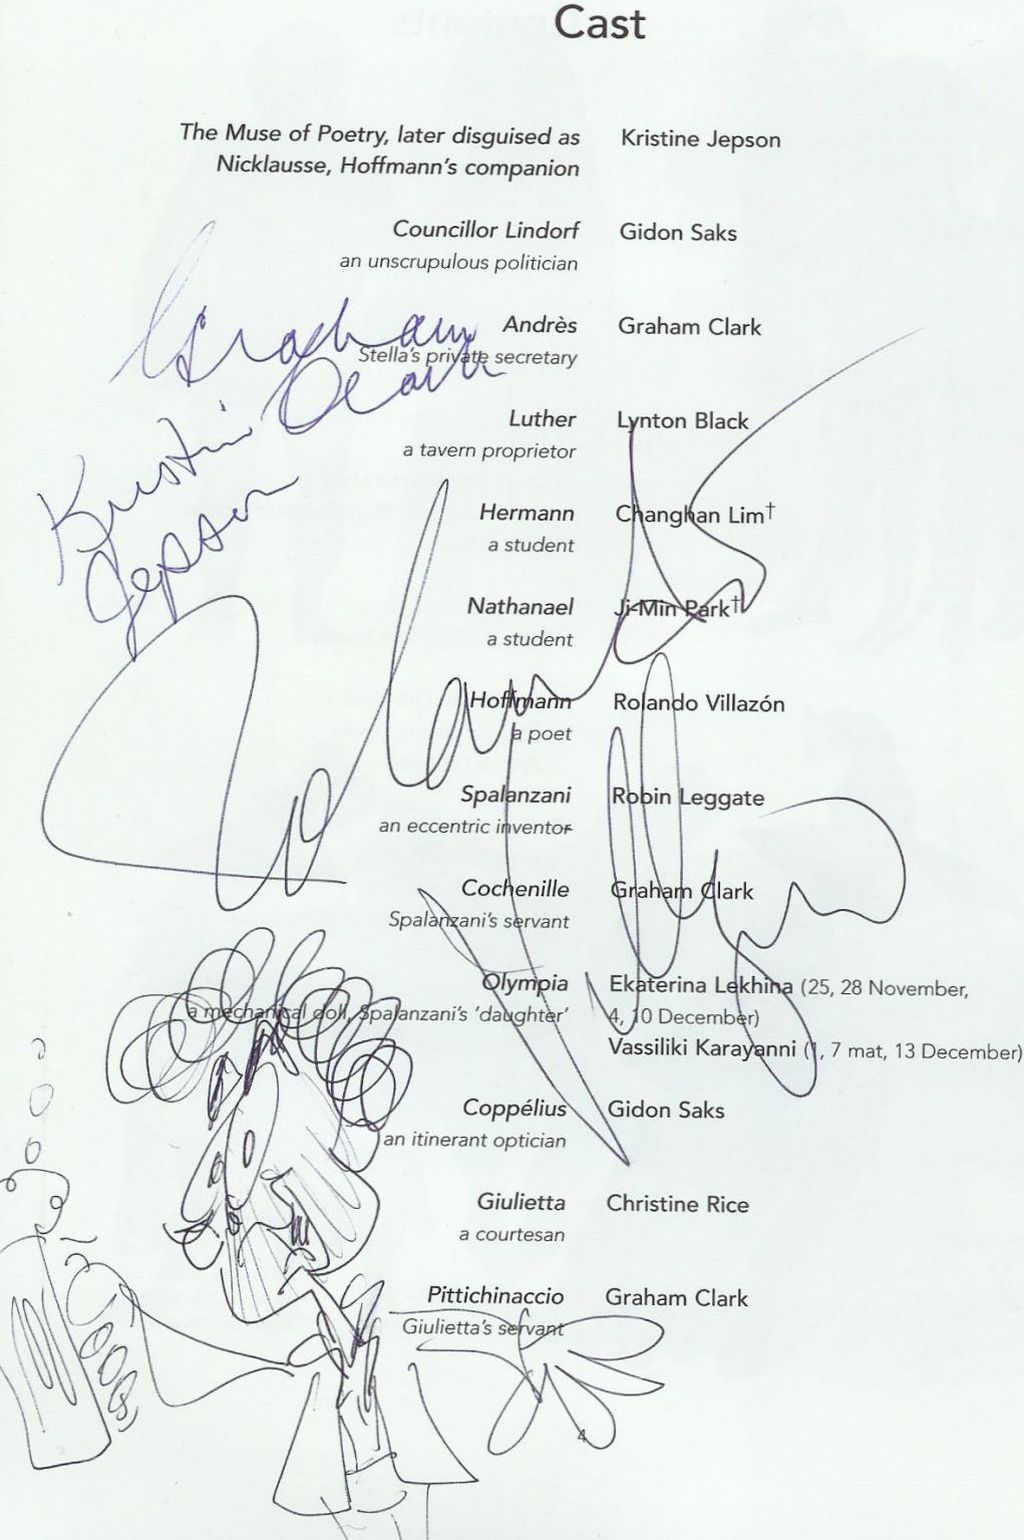 Cast
The Muse of Poetry, later disguised as
Nicklausse, Hoffmann's companion
Kristine Jepson
Councillor Lindorf
an unscrupulous politician
Gidon Saks
Andrès
Stella's private secretary
Graham Clark
Graham
Clark
Luther
a tavern proprietor
Lynton Black
Kristine
Jepson
Hermann
a student
Changhan Lim†
Nathanael
a student
Ji-Min Park†
Hoffmann
a poet
Rolando Villazón
Rolando
Spalanzani
an eccentric inventor
Robin Leggate
Cochenille
Spalanzani's servant
Graham Clark
Olympia
a mechanical doll, Spalanzani's 'daughter'
Ekaterina Lekhina (25, 28 November,
4, 10 December)
Vassiliki Karayanni (1, 7 mat, 13 December)
Coppélius
an itinerant optician
Gidon Saks
Giulietta
a courtesan
Christine Rice
Pittichinaccio
Giulietta's servant
Graham Clark
4